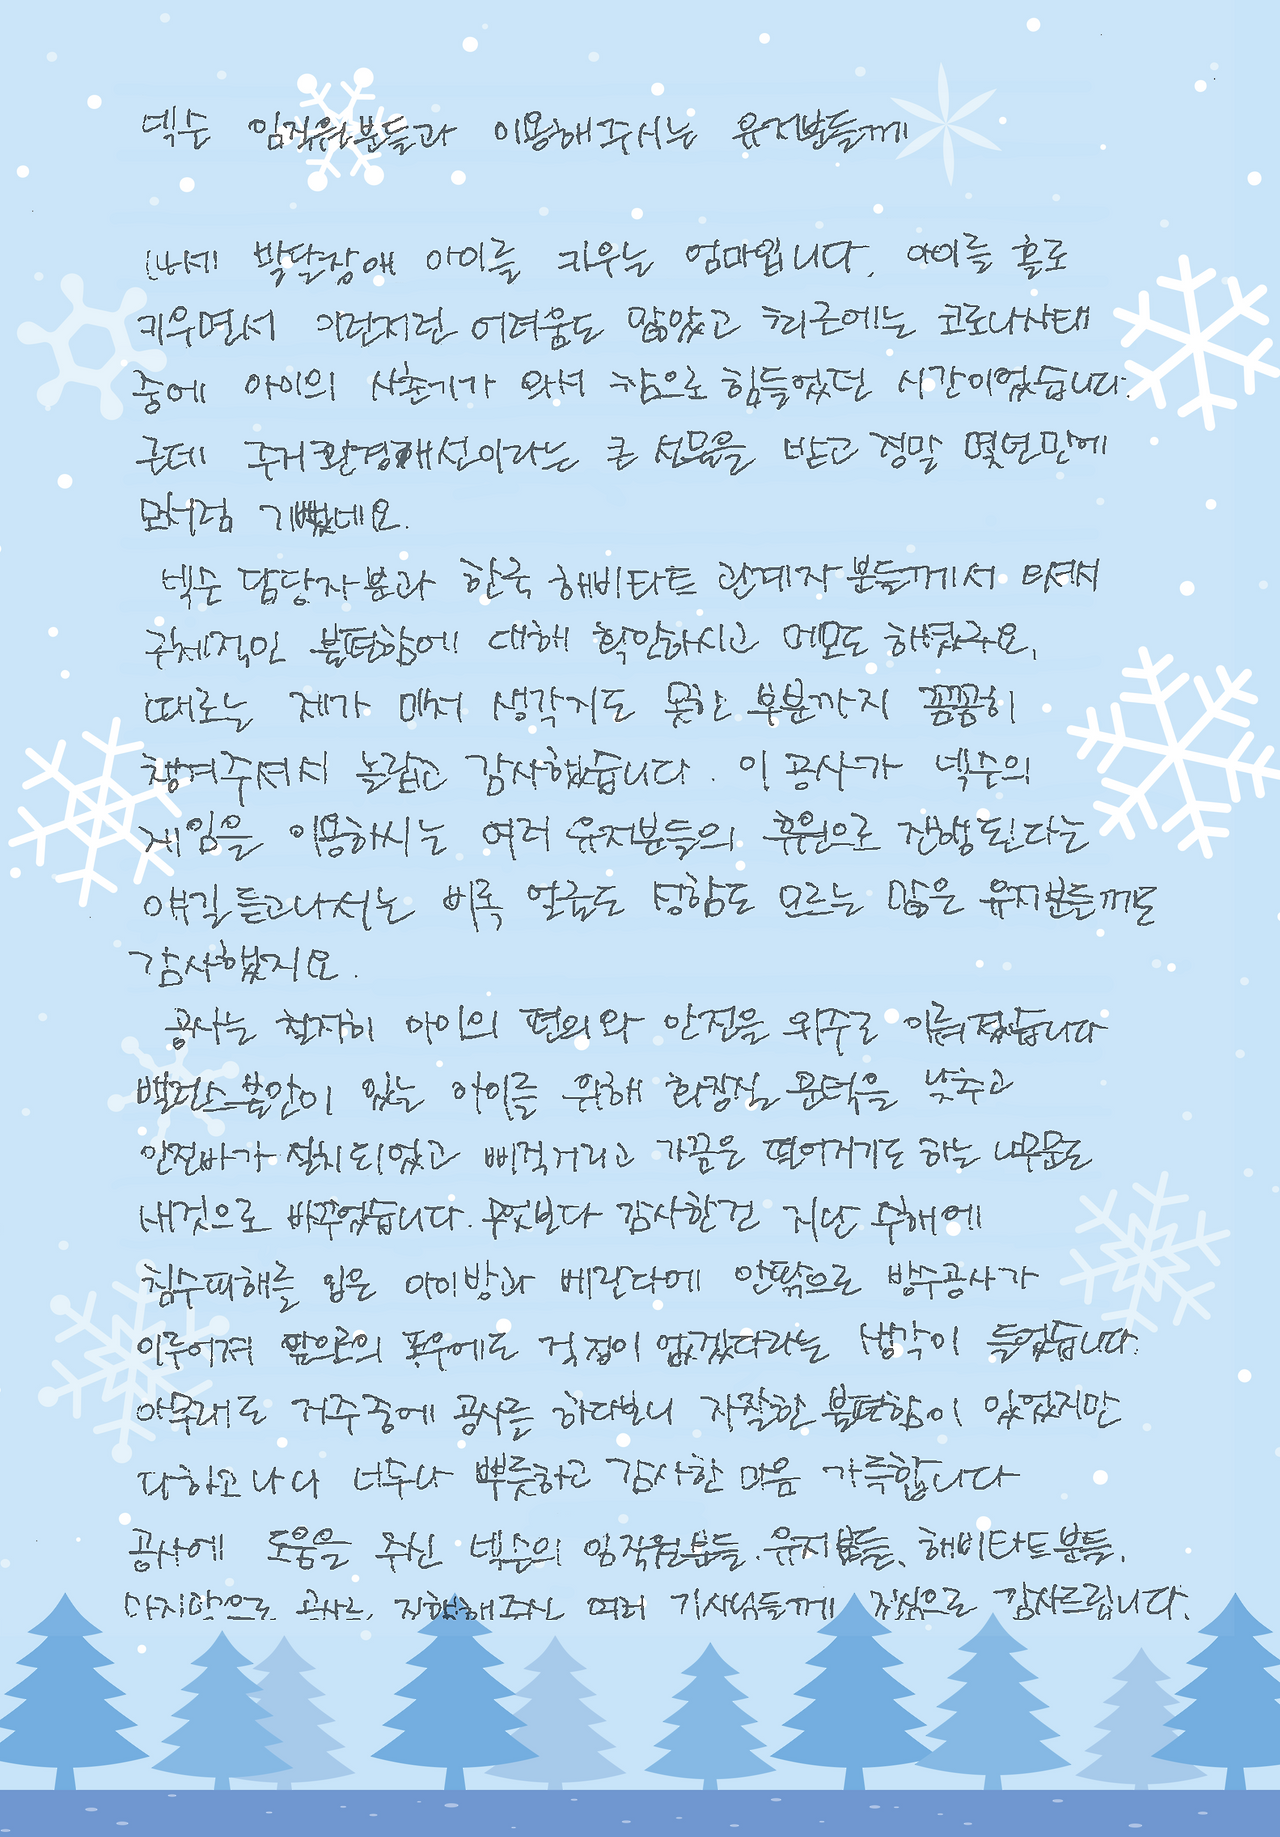 넥슨 임직원분들과 이용해주시는 유저분들께
14세 발달장애 아이를 키우는 엄마입니다. 아이를 홀로
키우면서 이런저런 어려움도 많았고 최근에는 코로나사태
중에 아이의 사춘기가 와서 참으로 힘들었던 시간이었습니다.
근데 주거환경개선이라는 큰 선물을 받고 정말 몇년만에
모처럼 기뻤네요.
넥슨 담당자분과 한국 해비타트 관계자분들께서 오셔서
구체적인 불편함에 대해 확인하시고 메모도 하셨구요,
때로는 제가 미처 생각지도 못한 부분까지 꼼꼼히
챙겨주셔서 놀랍고 감사했습니다. 이 공사가 넥슨의
게임을 이용하시는 여러 유저분들의 후원으로 진행된다는
얘길 듣고나서는 비록 얼굴도 성함도 모르는 많은 유저분들께도
감사했지요.
공사는 철저히 아이의 편의와 안전을 위주로 이뤄졌습니다
밸런스불안이 있는 아이를 위해 화장실 문턱을 낮추고
안전바가 설치되었고 삐걱거리고 가끔은 떨어지기도 하는 나무문도
새것으로 바꾸었습니다. 무엇보다 감사한건 지난 수해에
침수피해를 입은 아이방과 베란다에 안팎으로 방수공사가
이루어져 앞으로의 폭우에도 걱정이 없겠다라는 생각이 들었습니다.
아무래도 거주중에 공사를 하다보니 자잘한 불편함이 있었지만
다하고나니 너무나 뿌듯하고 감사한 마음 가득합니다
공사에 도움을 주신 넥슨의 임직원분들, 유저분들, 해비타트분들,
마지막으로 공사를 진행해주신 여러 기사님들께 진심으로 감사드립니다.